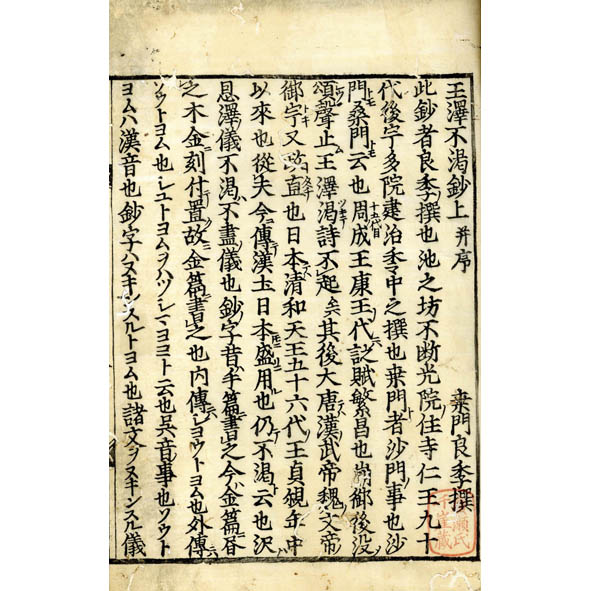 王澤不渇鈔上 并序　桒門良季撰
此鈔者良季撰也池之坊不断光院住寺仁王九十
代後宇多院建治季中之撰也桒門者沙門事也沙
門桑門云也周成王康王代詩賦繁昌也崩御後没
頌聲止王澤渇詩不起矣其後大唐漢武帝魏文帝
御宇又興直也日本清和天王五十六代王貞観年中
以來也從夫今傳漢土日本盛用也仍不渇ト云也沢
恩澤儀不渇不盡儀也鈔字昔手篇書之今金篇昼
之木金刻付置故金篇書之也内傳ショウトヨム也外傳
ソウトヨム也シユトヨムヲハツシマヨヨト云也呉音事也ソウト
ヨムハ漢音也鈔字ハヌキンスルトヨム也諸文ヲヌキンスル儀